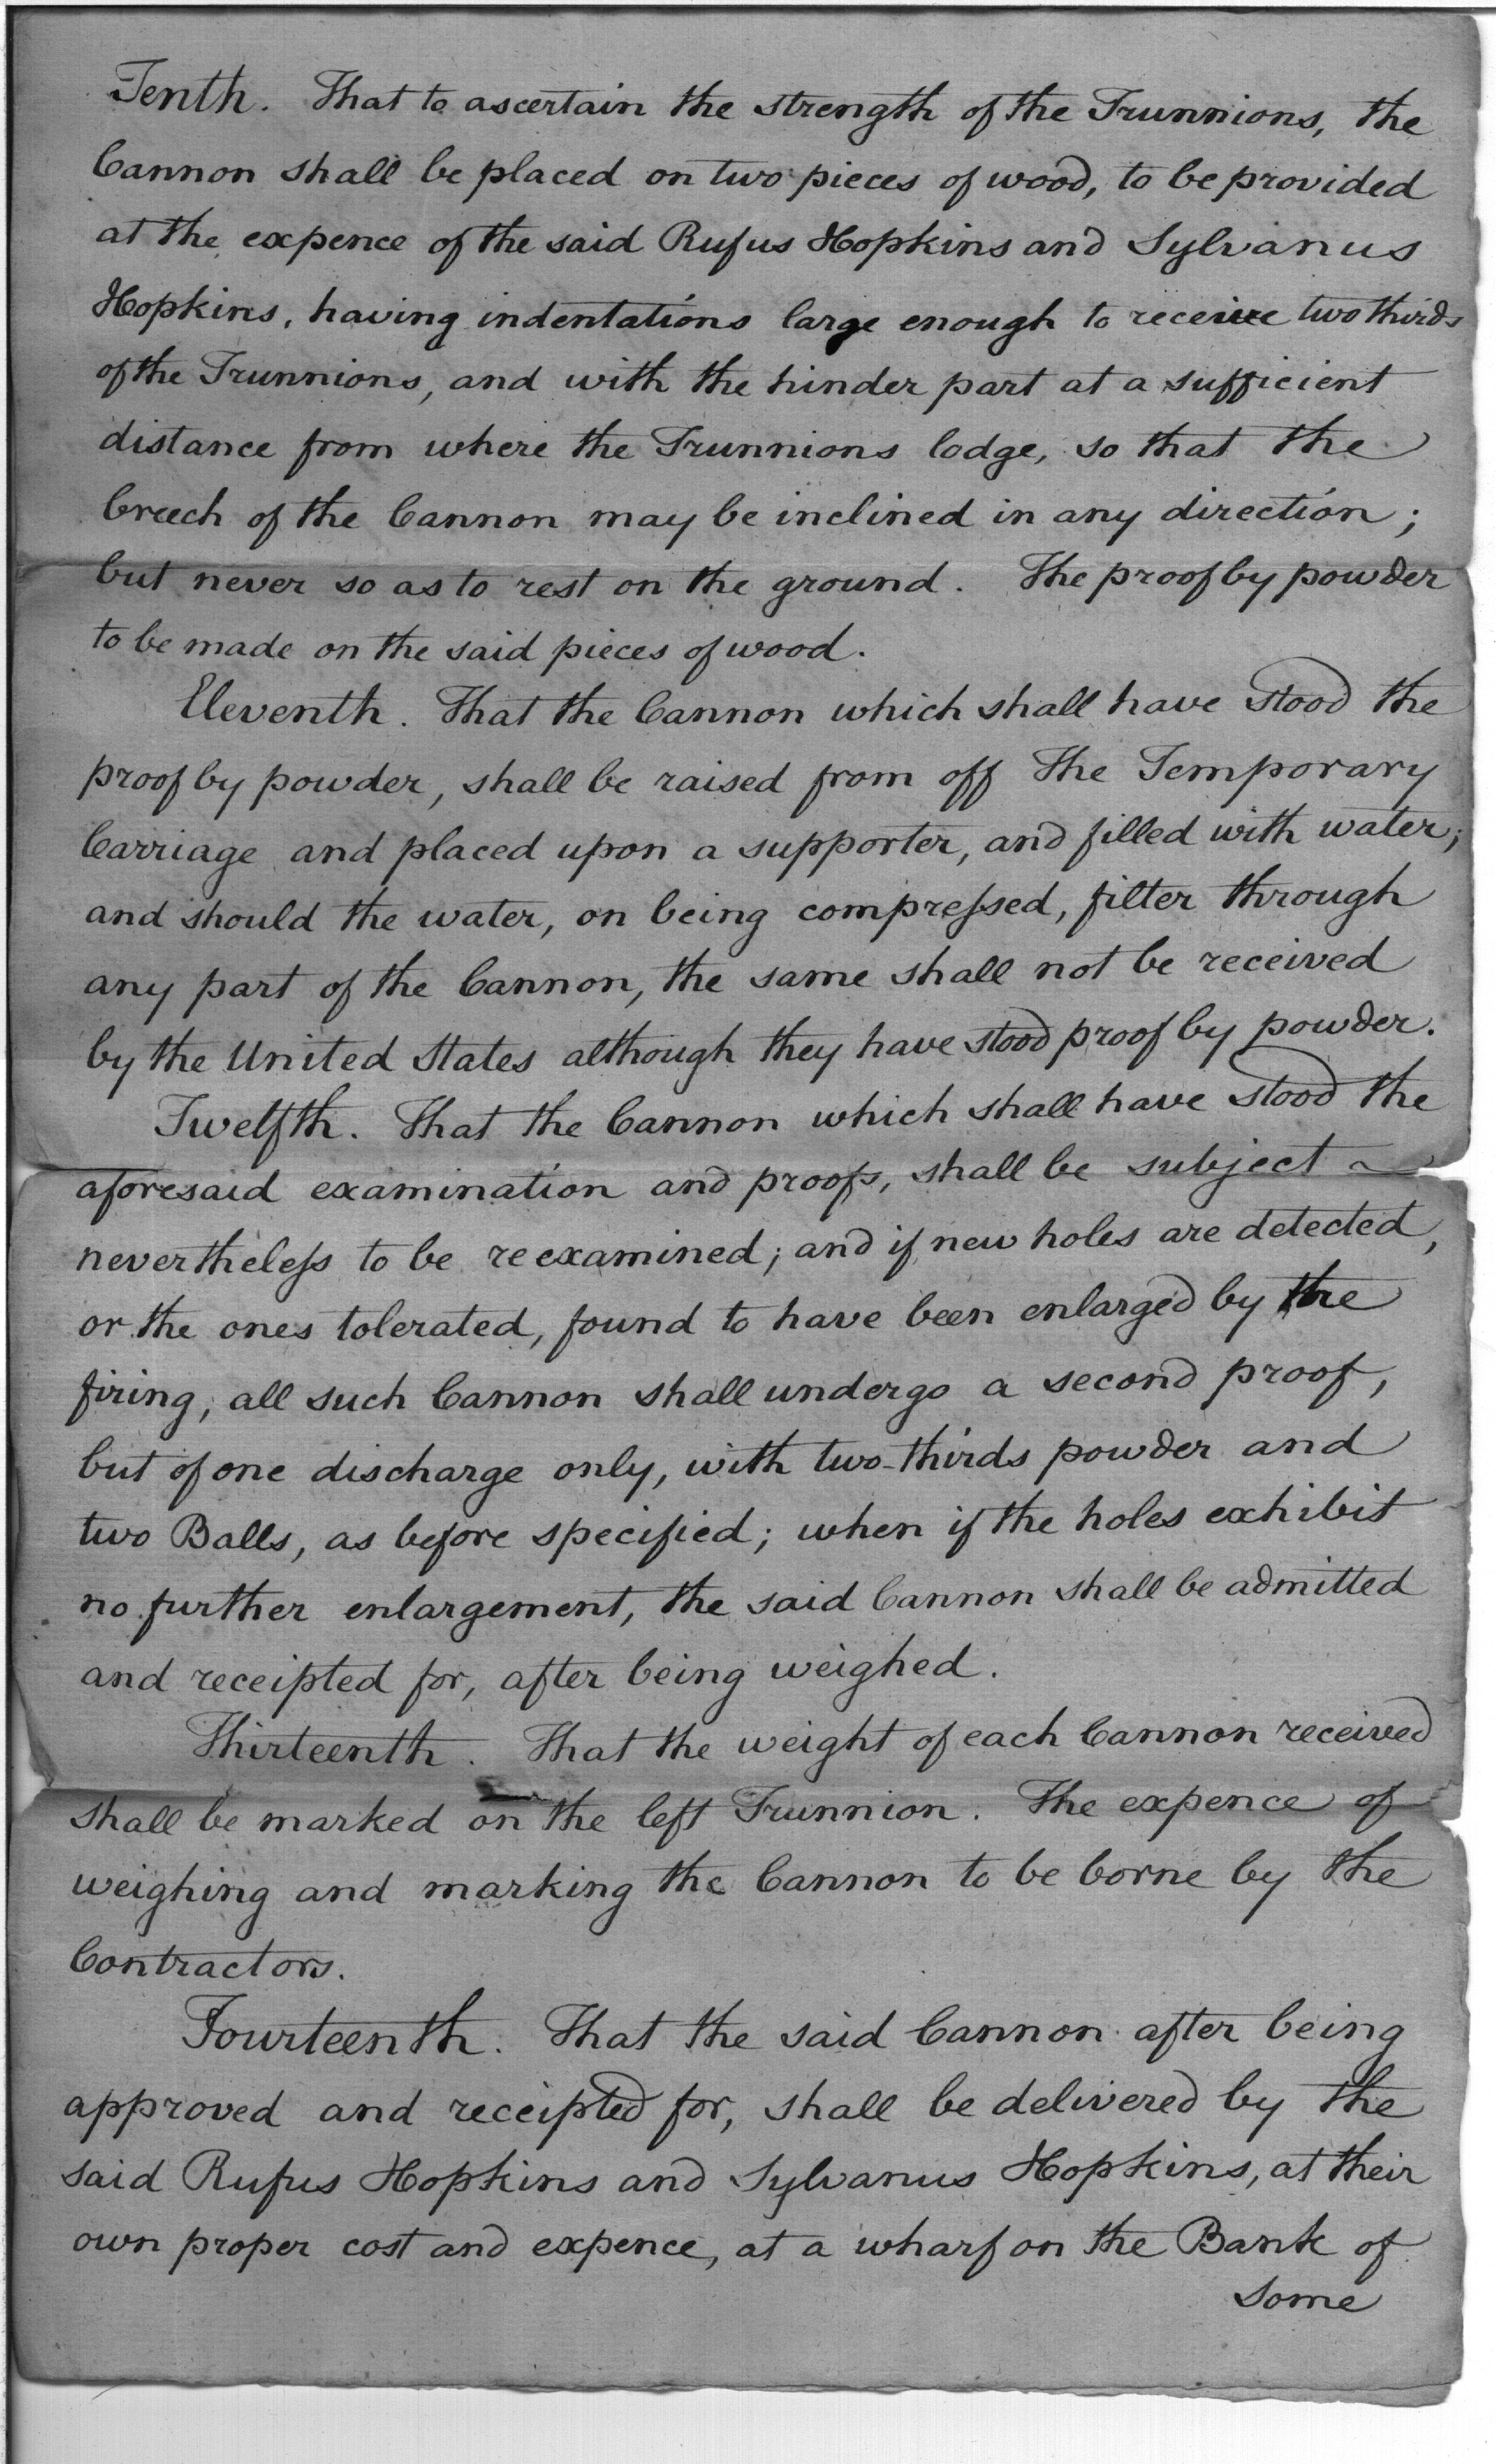 Tenth. That to ascertain the strength of the Trunnions, the
Cannon shall be placed on two pieces of wood, to be provided
at the expence of the said Rufus Hopkins and Sylvanus
Hopkins, having indentations large enough to receive two thirds
of the Trunnions, and with the hinder part at a sufficient
distance from where the Trunnions lodge, so that the
breech of the Cannon may be inclined in any direction;
but never so as to rest on the ground. The proof by powder
to be made on the said pieces of wood.
Eleventh. That the Cannon which shall have stood the
proof by powder, shall be raised from off the Temporary
Carriage and placed upon a supporter, and filled with water;
and should the water, on being compreſsed, filter through
any part of the Cannon, the same shall not be received
by the United States although they have stood proof by powder.
Twelfth. That the Cannon which shall have stood the
aforesaid examination and proofs, shall be subject
nevertheleſs to be reexamined; and if new holes are detected,
or the ones tolerated, found to have been enlarged by the
firing, all such Cannon shall undergo a second proof,
but of one discharge only, with two-thirds powder and
two Balls, as before specified; when if the holes exhibit
no further enlargement, the said Cannon shall be admitted
and receipted for, after being weighed.
Thirteenth. That the weight of each Cannon received
shall be marked on the left Trunnion. The expence of
weighing and marking the Cannon to be borne by the
Contractors.
Fourteenth. That the said Cannon after being
approved and receipted for, shall be delivered by the
said Rufus Hopkins and Sylvanus Hopkins, at their
own proper cost and expence, at a wharf on the Bank of
some